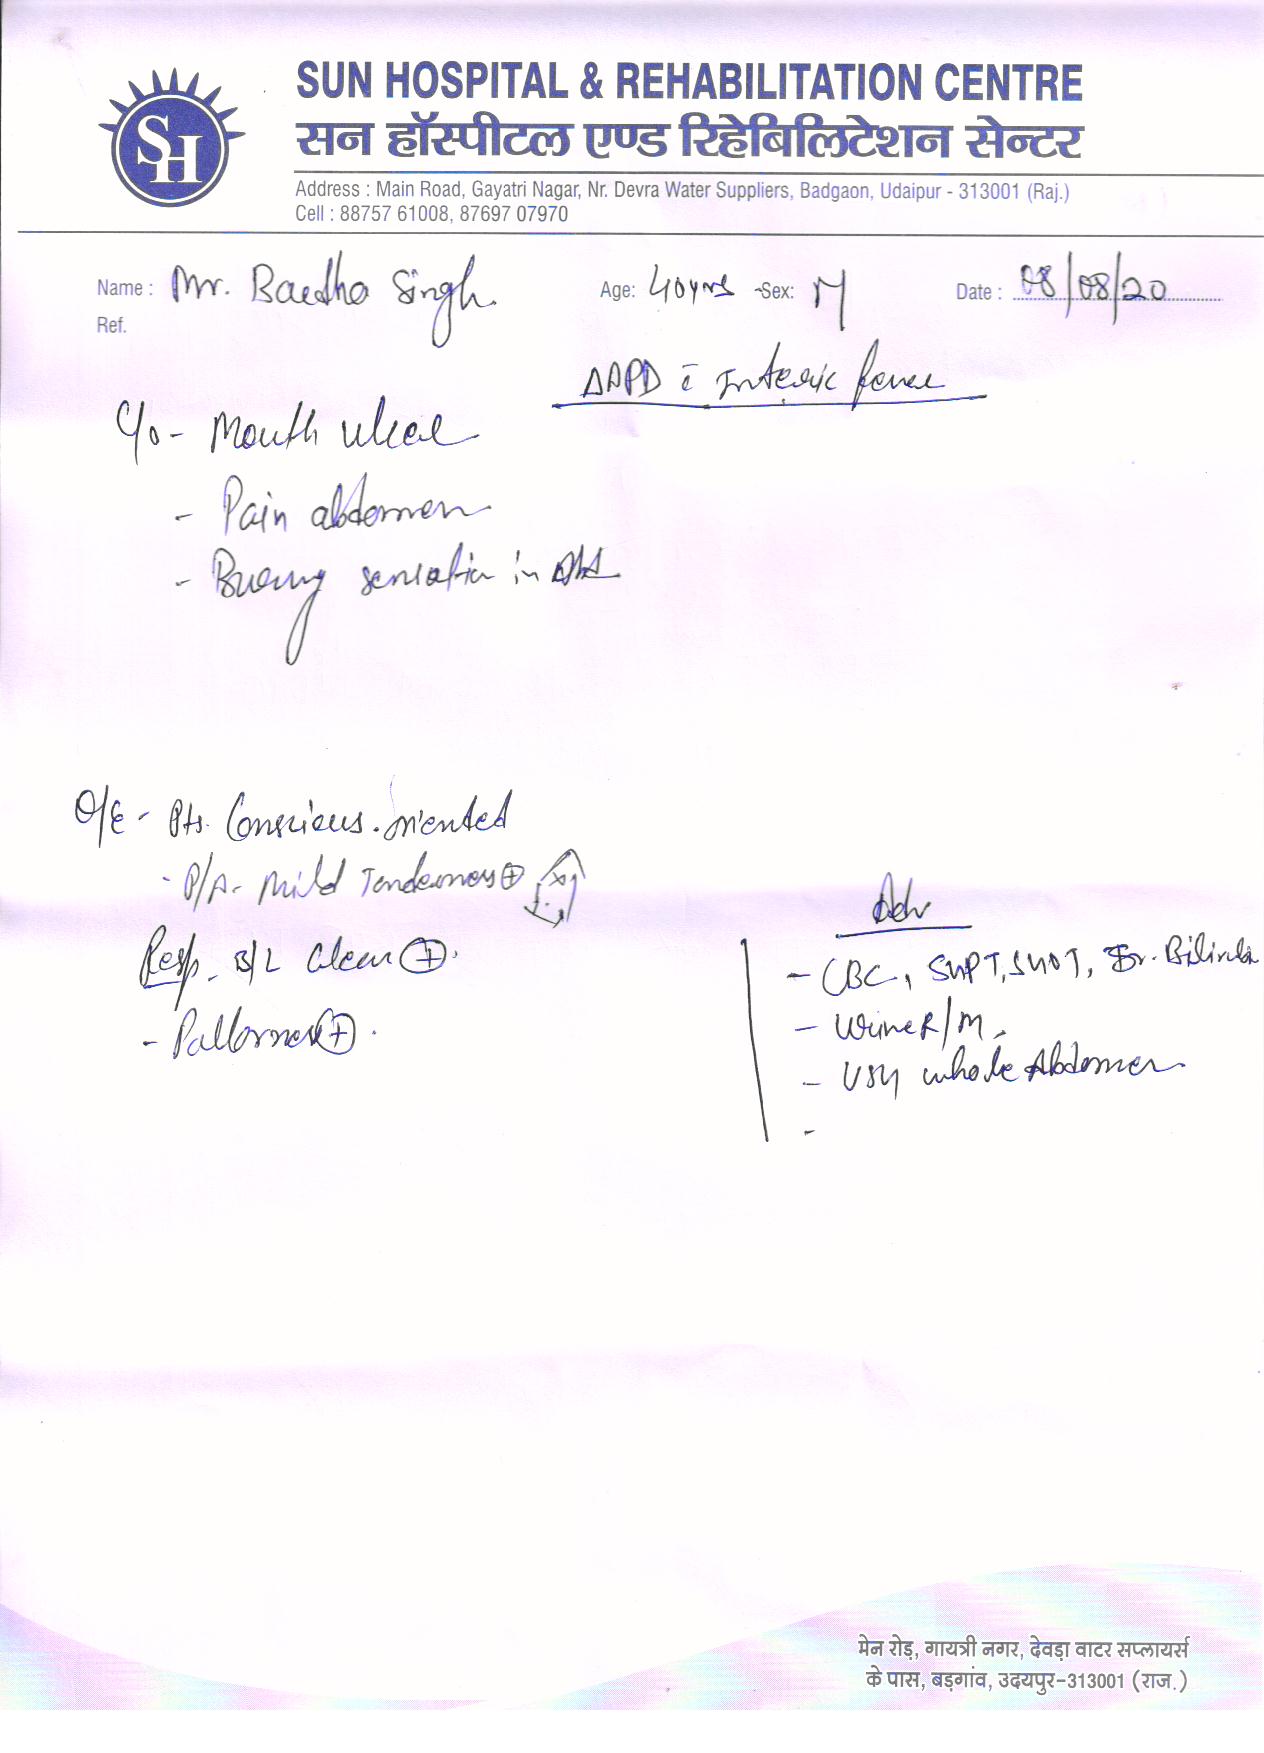 SH
SUN HOSPITAL & REHABILITATION CENTRE
सन हॉस्पीटल एण्ड रिहेबिलिटेशन सेन्टर
Address : Main Road, Gayatri Nagar, Nr. Devra Water Suppliers, Badgaon, Udaipur - 313001 (Raj.)
Cell : 88757 61008, 87697 07970
Name : Mr. Singh Age: 40yrs Sex: M Date : 08/08/20
Ref.
c̄ Interic fever
C/o - Mouth ulcer
- Pain abdomen
- Burning sensation in
O/E - Pts. Conscious. oriented
- P/A - Mild Tenderness ⊕
Resp. B/L Clear ⊕.
- Pallorness ⊕.
Adv
- CBC, SGPT, SGOT, Sr. Bilirubi
- Urine R/M.
- USG whole Abdomen
-
मेन रोड़, गायत्री नगर, देवड़ा वाटर सप्लायर्स
के पास, बड़गांव, उदयपुर-313001 (राज.)